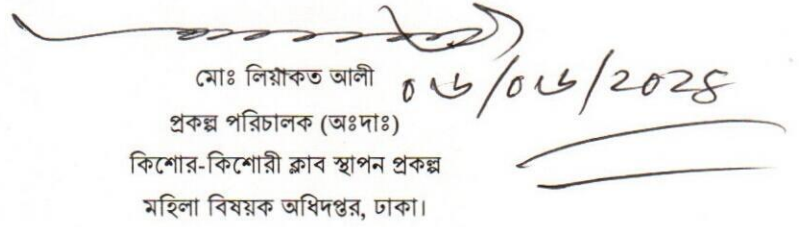 মোঃ লিয়াকত আলী ০৬/০৬/২০২৪
প্রকল্প পরিচালক (অঃদাঃ)
কিশোর-কিশোরী ক্লাব স্থাপন প্রকল্প
মহিলা বিষয়ক অধিদপ্তর, ঢাকা।